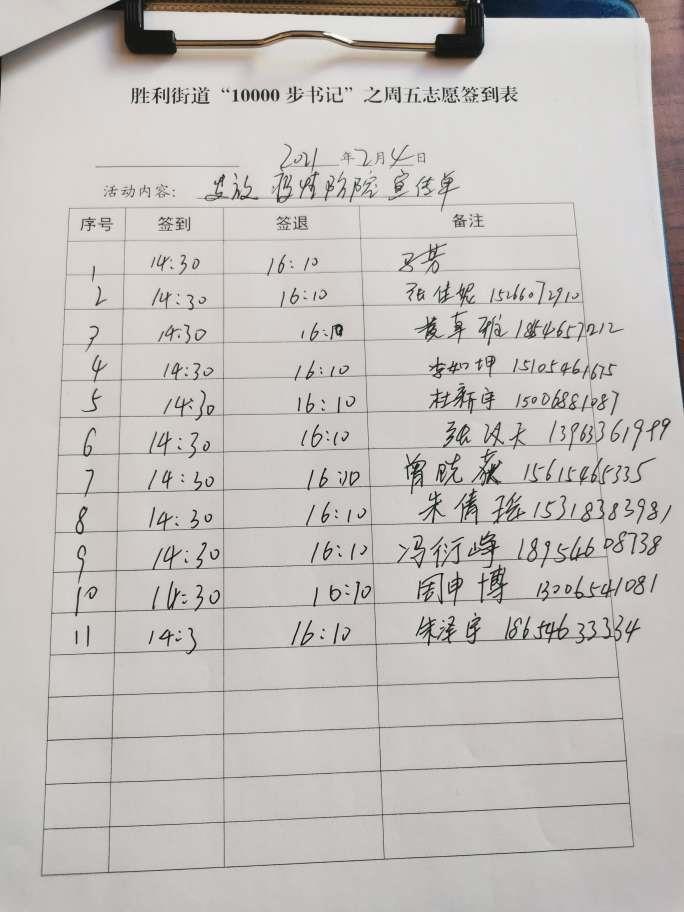 胜利街道“10000步书记”之周五志愿签到表
2021年2月4日
活动内容：发放疫情防院宣传单
序号 签到 签退 备注
1 14:30 16:10 芳
2 14:30 16:10 张佳妮 15266072910
3 14:30 16:10 1854657212
4 14:30 16:10 李如坤 15105461675
5 14:30 16:10 杜新宇 15006881087
6 14:30 16:10 张汉天 13963361999
7 14:30 16:10 曾晓 15615465335
8 14:30 16:10 朱倩瑶 15318383981
9 14:30 16:10 冯衍峰 18954608738
10 14:30 16:10 周申博 13006541081
11 14:3 16:10 朱泽宇 18654633334